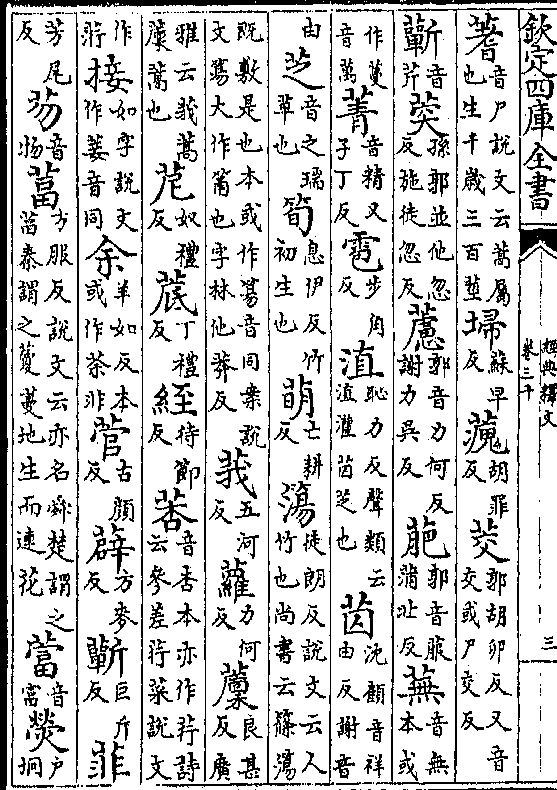 欽定四庫全書 經典釋文 卷三十 三
蓍音尸説文云蒿屬也生千歳三百莖埽蘇早反藱胡罪反茭郭胡卯反又音交或尸交反
蘄音芹葖孫郭並他忽反施徒忽反蘆郭音力何反謝力吳反萉郭音服蒲北反蕪音無本或
作蔓音萬菁音精又子丁反雹步角反淔恥力反聲類云淔灌茵芝也茵沈顧音祥由反謝音
由芝音之瑞草也筍息伊反竹初生也萌亡耕反簜徒朗反説文云大竹也尚書云篠簜
既敷是也本或作蕩音同案説文蕩大作筩也字林他莽反莪五河反蘿力何反䕲良甚反廣
雅云莪蒿䕲蒿也苨奴禮反菧丁禮反絰待節反莕音杏本亦作荇詩云參差荇菜説文
作荇接如字説文作菨音同余羊如反本或作荼非菅古顔反薜方麥反蘄巨斤反菲
芳尾反芴音物葍方服反説文云亦名舜楚謂之葍秦謂之藑蔓地生而連花䔰音富熒户坰